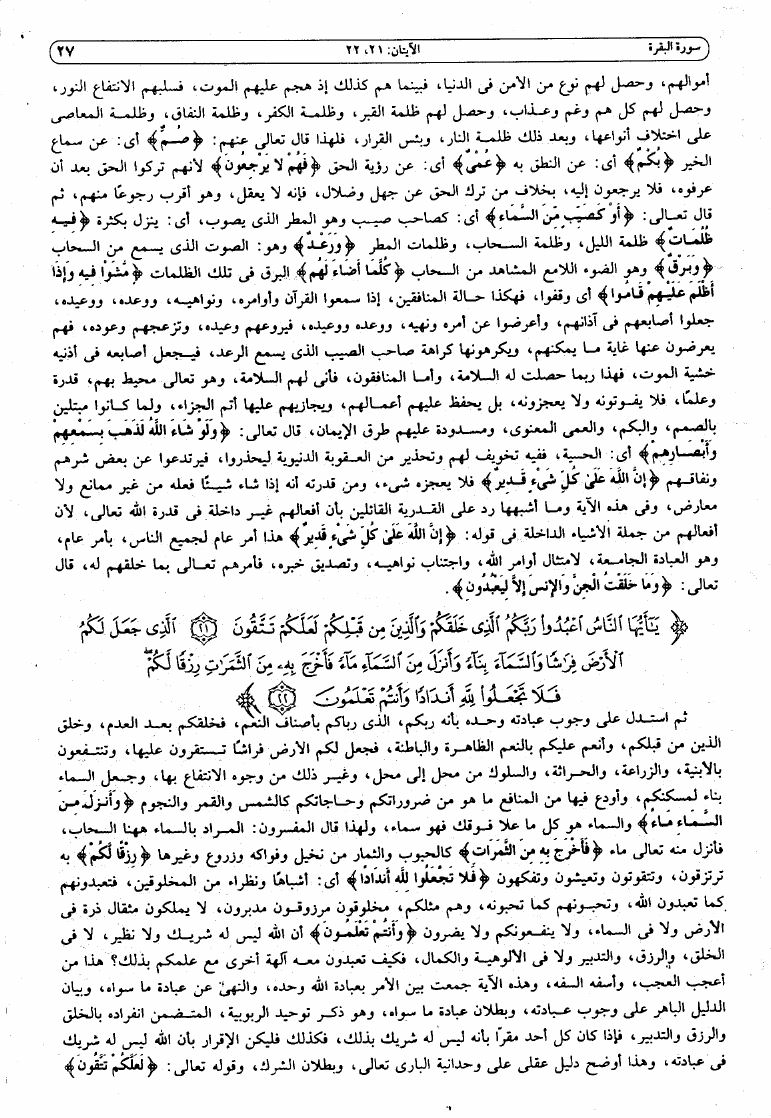 سورة البقرة الآيتان: ٢١، ٢٢ ٢٧
أموالهم، وحصل لهم نوع من الأمن فى الدنيا، فبينما هم كذلك إذ هجم عليهم الموت، فسلبهم الانتفاع النور،
وحصل لهم كل هم وغم وعـذاب، وحصل لهم ظلمة القبر، وظلمـة الكفر، وظلمة النفاق، وظلمـة المعاصى
على اختلاف أنواعها، وبعد ذلك ظلمـة النار، وبئس القرار، فلهذا قال تعالى عنهم: ﴿صُمٌّ﴾ أى: عن سماع
الخير ﴿بُكْمٌ﴾ أى: عن النطق به ﴿عُمْىٌ﴾ أى: عن رؤية الحق ﴿فَهُمْ لا يَرْجِعُونَ﴾ لأنهم تركوا الحق بعد أن
عرفوه، فلا يرجعون إليه، بخلاف من ترك الحق عن جهل وضلال، فإنه لا يعقل، وهو أقرب رجوعًا منهم، ثم
قال تعـالى: ﴿أَوْ كَصَيِّبٍ مِّنَ السَّمَاءِ﴾ أى: كصاحب صيـب وهو المطر الذى يصوب، أى: ينزل بكثرة ﴿فِيـهِ
ظُلُمَاتٌ﴾ ظلمة الليل، وظلمة السـحاب، وظلمات المطر ﴿وَرَعْدٌ﴾ وهو: الصوت الذى يسمع من السحاب
﴿وَبَرْقٌ﴾ وهو الضوء اللامع المشاهد من السـحاب ﴿كُلَّمَا أَضَاءَ لَهُم﴾ البرق فى تلك الظلمات ﴿مَّشَوْا فِيهِ وَإِذَا
أَظْلَمَ عَلَيْهِمْ قَامُوا﴾ أى وقفوا، فهكذا حـالة المنافقين، إذا سمعوا القرآن وأوامره، ونواهيـه، ووعده، ووعيده،
جعلوا أصابعهم فى آذانهم، وأعرضوا عن أمره ونهيه، ووعده ووعيده، فيروعهم وعيده، وتزعجهم وعوده، فهم
يعرضون عنها غاية مـا يمكنهم، ويكرهونها كراهة صاحب الصيب الذى يسمع الرعد، فيـجعل أصابعه فى أذنيه
خشية الموت، فهذا ربما حصلت له السلامة، وأمـا المنافقون، فأنى لهم السلامة، وهو تعالى محيط بهم، قدرة
وعلمًا، فلا يفـوتونه ولا يعجزونه، بل يحفظ عليهم أعمـالهم، ويجازيهم عليها أتم الجزاء، ولما كـانوا مبتلين
بالصمم، والبكم، والعمى المعنوى، ومسـدودة عليهم طرق الإيمان، قال تعالى: ﴿وَلَوْ شَاءَ اللَّهُ لَذَهَبَ بِسَمْعِهِمْ
وَأَبْصَارِهِمْ﴾ أى: الحسية، ففيه تخويف لهم وتحذير من العقوبة الدنيوية ليحذروا، فيرتدعوا عن بعض شرهم
ونفاقـهم ﴿إِنَّ اللَّهَ عَلَىٰ كُلِّ شَىْءٍ قَدِيرٌ﴾ فلا يعجزه شىء، ومن قدرته أنه إذا شاء شيـئًا فعله من غير ممانع ولا
معارض، وفى هذه الآية ومـا أشبهها رد على القـدرية القائلين بأن أفعالهم غيـر داخلة فى قدرة الله تعالى، لأن
أفعالهم من جملة الأشياء الداخلة فى قوله: ﴿إِنَّ اللَّهَ عَلَىٰ كُلِّ شَىْءٍ قَدِيرٌ﴾ هذا أمر عام لجميع الناس، بأمر عام،
وهو العبادة الجامعـة، لامتثال أوامر الله، واجتناب نواهيـه، وتصديق خبره، فأمرهم تعـالى بما خلقهم له، قال
تعالى: ﴿وَمَا خَلَقْتُ الْجِنَّ وَالإِنسَ إِلاَّ لِيَعْبُدُونِ﴾.
﴿ يَـٰٓأَيُّهَا ٱلنَّاسُ ٱعْبُدُوا۟ رَبَّكُمُ ٱلَّذِى خَلَقَكُمْ وَٱلَّذِينَ مِن قَبْلِكُمْ لَعَلَّكُمْ تَتَّقُونَ ٢١ ٱلَّذِى جَعَلَ لَكُمُ
ٱلْأَرْضَ فِرَٰشًا وَٱلسَّمَآءَ بِنَآءً وَأَنزَلَ مِنَ ٱلسَّمَآءِ مَآءً فَأَخْرَجَ بِهِۦ مِنَ ٱلثَّمَرَٰتِ رِزْقًا لَّكُمْ
فَلَا تَجْعَلُوا۟ لِلَّهِ أَندَادًا وَأَنتُمْ تَعْلَمُونَ ٢٢ ﴾
ثم استـدل على وجوب عبادته وحـده بأنه ربكم، الذى رباكم بأصناف النعم، فخلقكم بعـد العدم، وخلق
الذين من قبلكم، وأنعم عليكم بالنعم الظاهـرة والباطنة، فجعل لكم الأرض فراشًا تسـتقرون عليها، وتنتـفعون
بالأبنية، والزراعة، والحراثة، والسلوك من محل إلى محل، وغيـر ذلك من وجوه الانتفاع بها، وجـعل السماء
بناء لمسكنكم، وأودع فيها من المنافع ما هو من ضروراتكم وحـاجاتكم كالشمس والقمر والنجوم ﴿وَأَنزَلَ مِـنَ
السَّمَاءِ مَـاءً﴾ والسماء هو كل ما علا فـوقك فهو سماء، ولهذا قال المفسـرون: المـراد بالسـماء ههنا السحاب،
فأنزل منه تعالى ماء ﴿فَأَخْرَجَ بِهِ مِنَ الثَّمَرَاتِ﴾ كالحبوب والثمار من نخيل وفواكه وزروع وغيرها ﴿رِزْقًا لَّكُمْ﴾ به
ترتزقون، وتتقوتون وتعيشون وتفكهون ﴿فَلا تَجْعَلُوا لِلَّهِ أَندَادًا﴾ أى: أشباهًا ونظراء من المخلوقين، فتعبدونهم
كما تعبدون الله، وتحبـونهم كما تحبونه، وهم مثلكم، مخلوقون مرزوقـون مدبرون، لا يملكون مثقال ذرة فى
الأرض ولا فى السماء، ولا ينفـعونكم ولا يضرون ﴿وَأَنتُمْ تَعْلَمُـونَ﴾ أن الله ليس له شريـك ولا نظير، لا فى
الخلق، والرزق، والتدبير ولا فى الألوهيـة والكمال، فكيف تعبدون معـه آلهة أخرى مع علمكم بذلك؟ هذا من
أعجب العجب، وأسفه السفه، وهذه الآية جمعت بين الأمر بعبادة الله وحده، والنهى عن عبادة ما سواه، وبيان
الدليل الباهر على وجوب عـبادته، وبطلان عبادة ما سواه، وهو ذكـر توحيد الربوبية، المتـضمن انفراده بالخلق
والرزق والتدبير، فإذا كان كل أحد مقرًا بأنه ليس له شريك بذلك، فكذلك فليكن الإقرار بأن الله ليس له شريك
فى عبادته، وهذا أوضح دليل عقلى على وحدانية البارى تعالى، وبطلان الشرك، وقوله تعالى: ﴿لَعَلَّكُمْ تَتَّقُونَ﴾